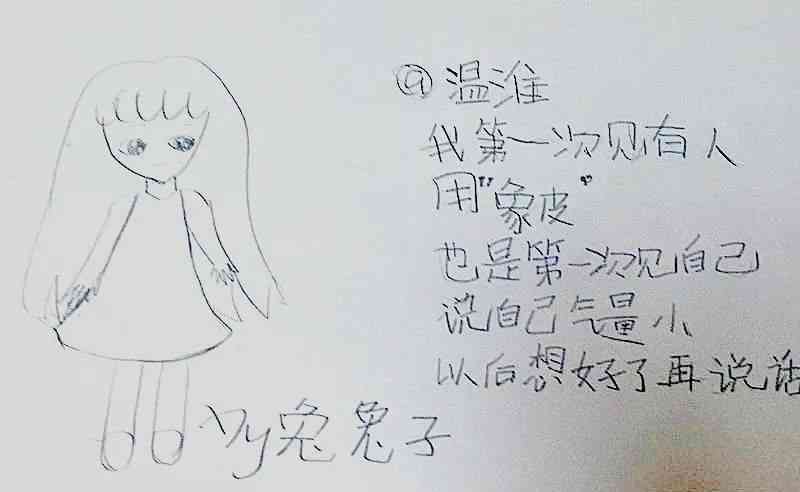 @温淮
我第一次见有人
用"象皮"
也是第一次见自己
说自己气量小
以后想好了再说话
by兔兔子